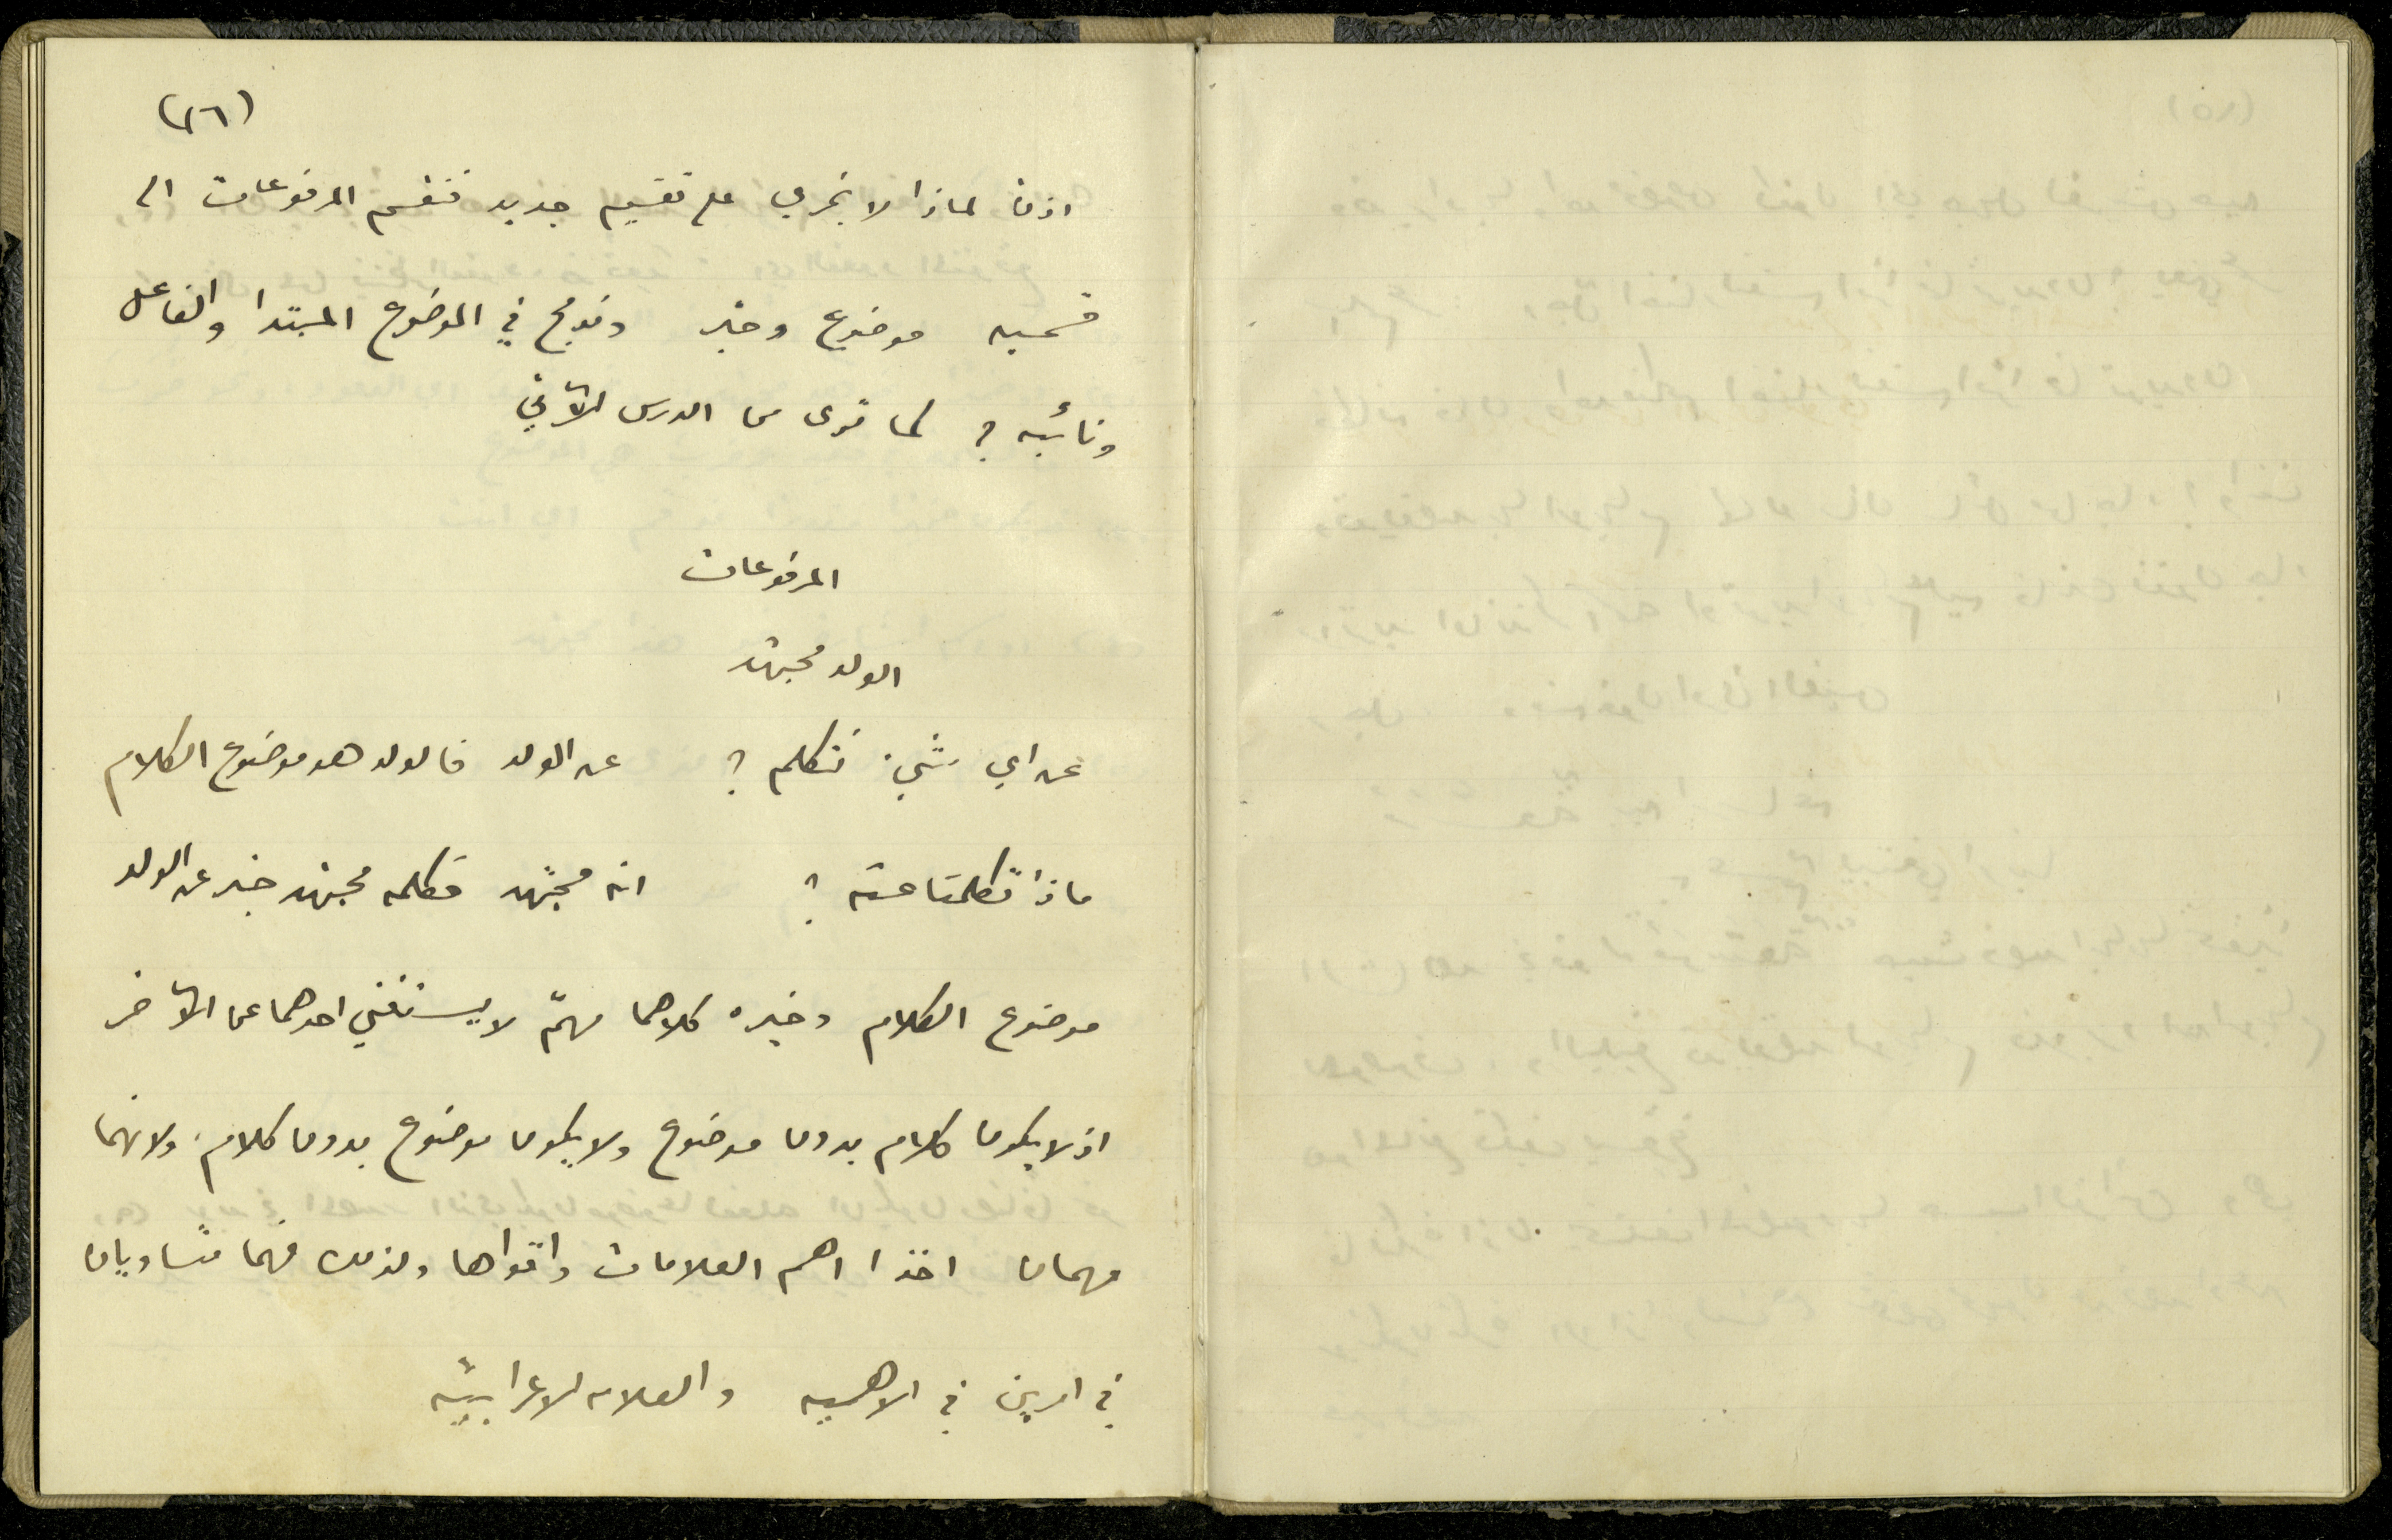 (٢٦)
اذن لماذا لا نجري على تقسيم جديد فنقسم المرفوعات الى
قسمين موضوع وخبر وندمج في الموضوع المبتدا والفاعل
ونائبه ؟ كما ترى من الدرس الآتي
المرفوعات
الولد مجتهد
عن اي شيء نتكلم ؟ عن الولد فالولد هو موضوع الكلام
ماذا تكلمنا عنه ؟ انه مجتهد فكلمه مجتهد خبر عن الولد
موضوع الكلام وخبره كلاهما مهمّ لا يستغني احدهما عن الآخر
اذ لا يكون كلام بدون موضوع ولا يكون موضوع بدون كلام، ولانهما
مهمان اخذا اهم العلامات واقواها ولذلك فهما متساويان
في امرين في الاهميه والعلامه الاعرابيّه